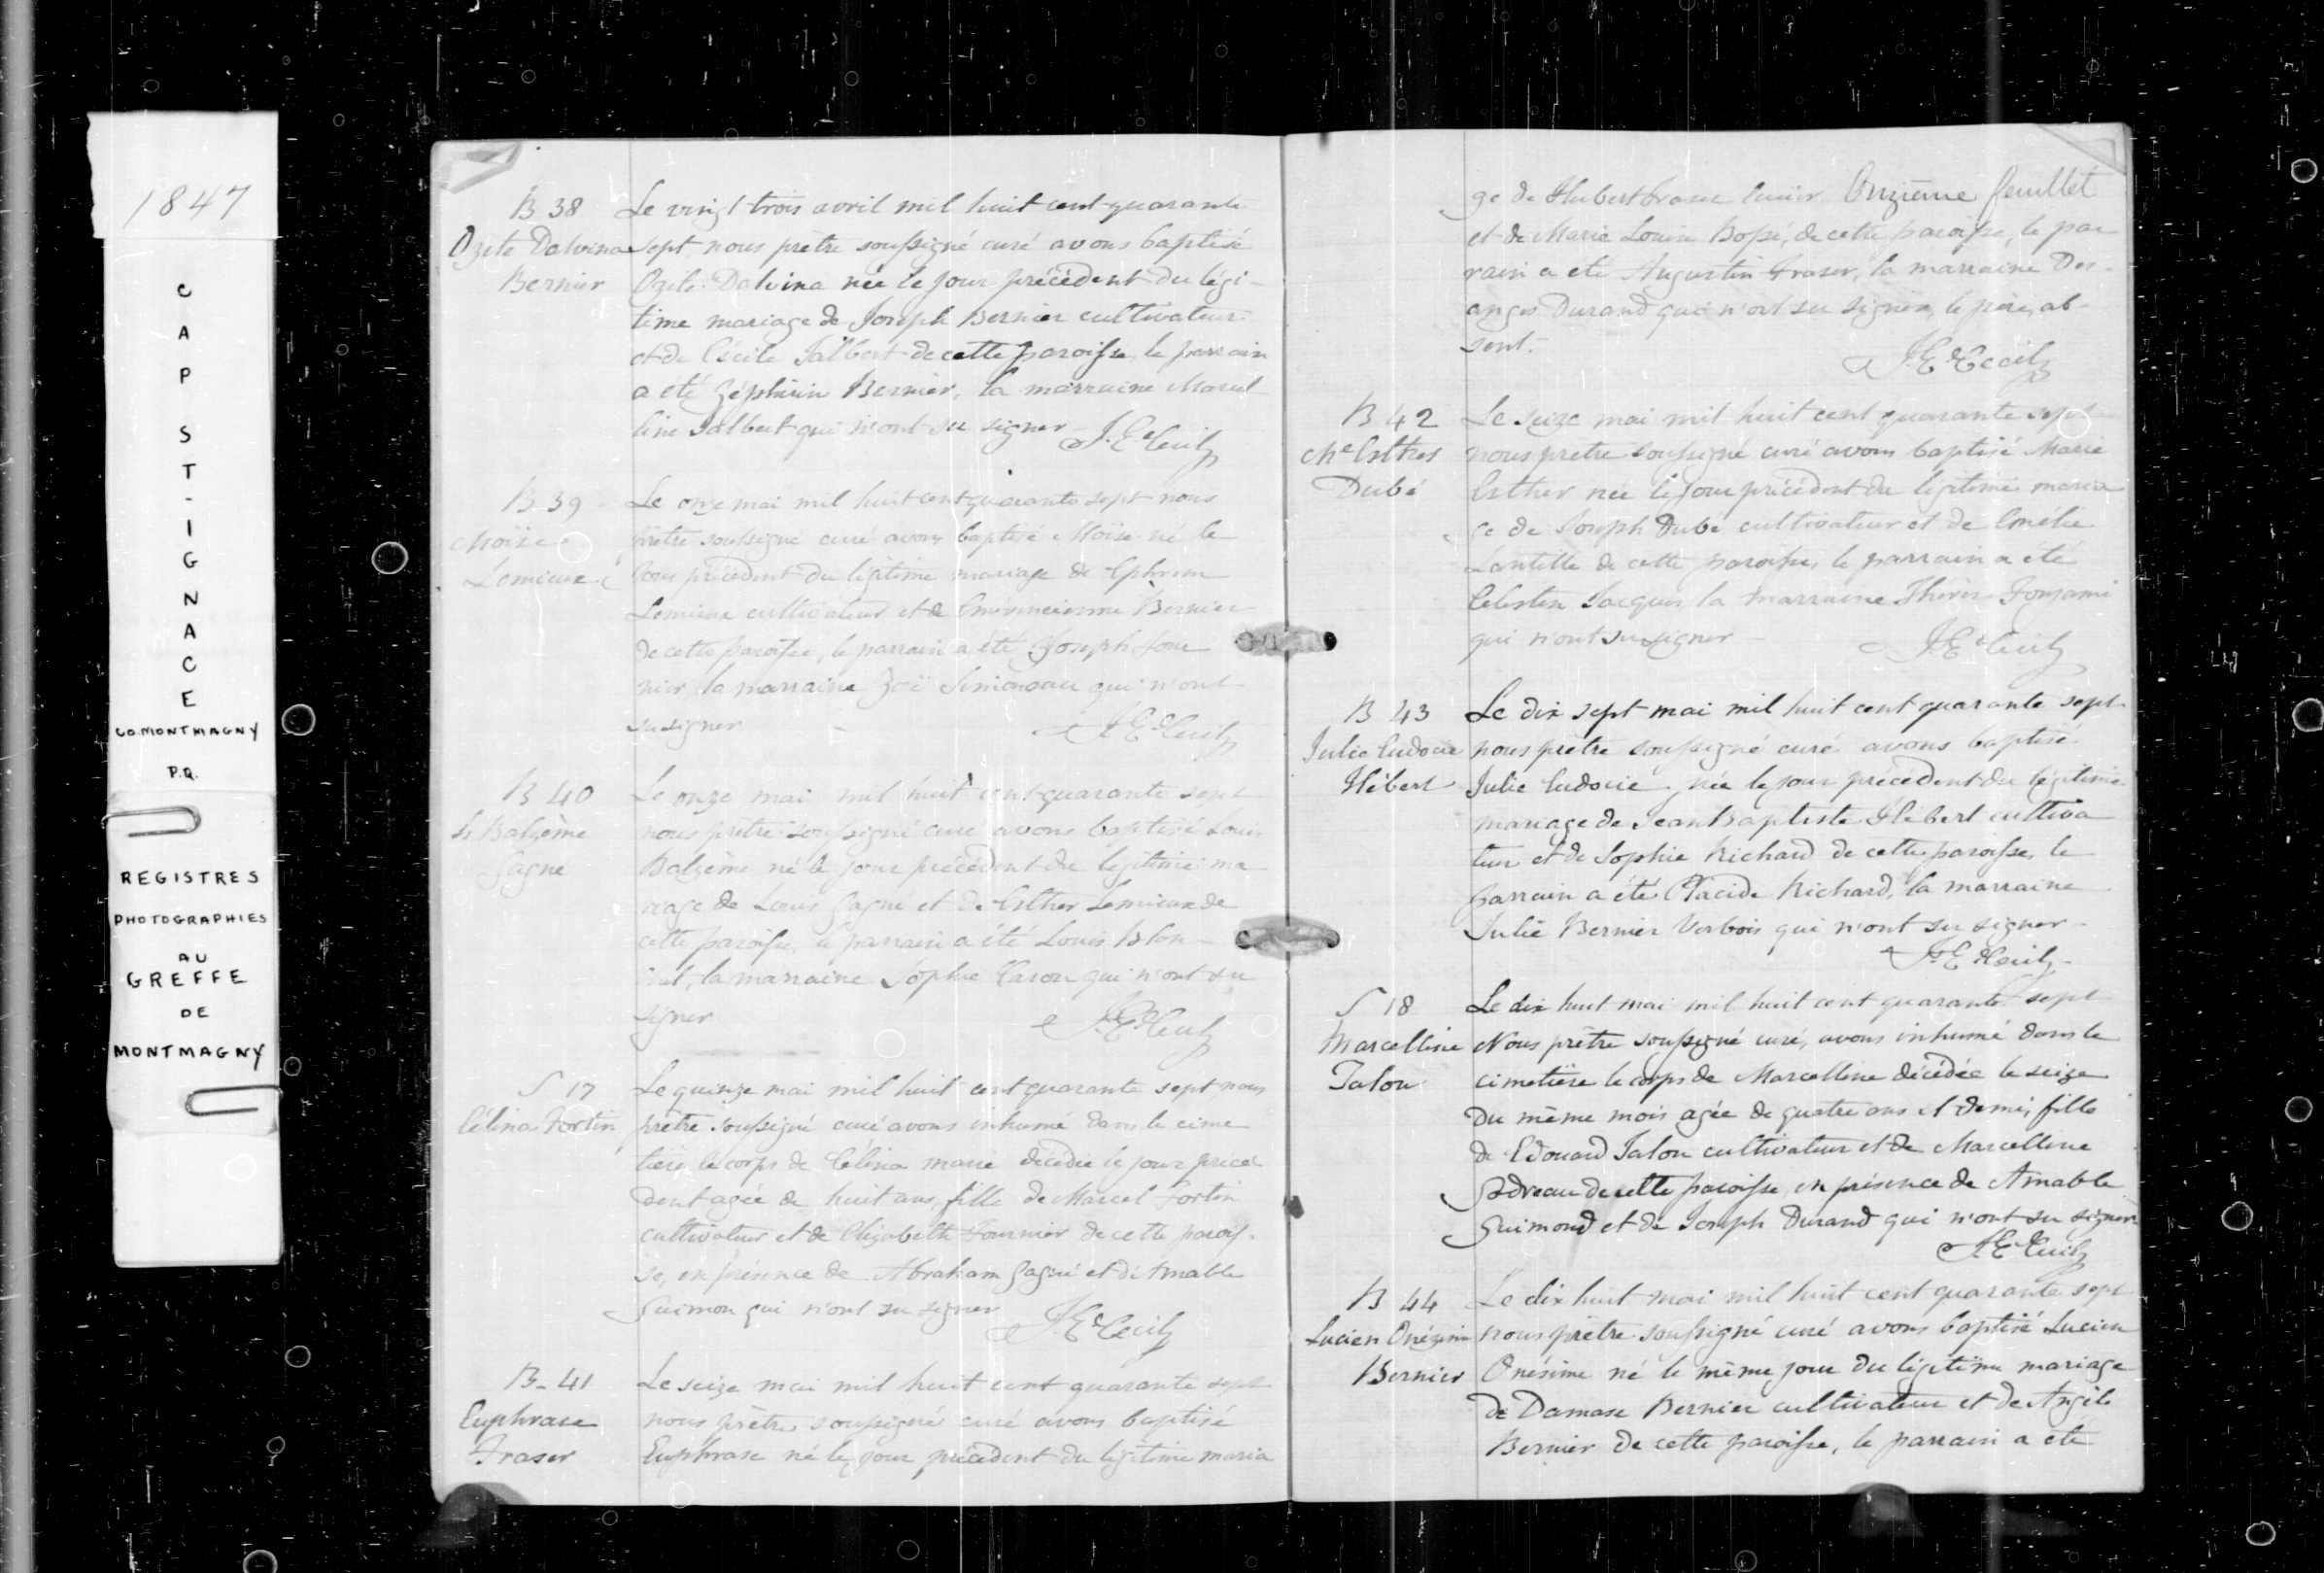 1847
CAP ST-IGNACE
CO. MONTMAGNY
P.Q.
REGISTRES
PHOTOGRAPHIES
AU
GREFFE
DE
MONTMAGNY
B 38
Ozile Dalvina
Bernier
Le vingt trois avril mil huit cent quarante
sept nous prêtre soussigné curé avons baptisé
Ozile Dalvina née le jour précédent du légi-
time mariage de Joseph Bernier cultivateur
et de Cécile Jalbert de cette paroisse, le parrain
a été Zéphirin Bernier, la marraine Marcel
line Jalbert qui n'ont su signer
B 39
Moïse
Lemieux
Le onze mai mil huit cent quarante sept nous
prêtre soussigné curé avons baptisé Moïse né le
jour précédent du légitime mariage de Ephrem
Lemieux cultivateur et de Bernier
de cette paroisse, le parrain a été Joseph Four
nier, la marraine Zoë Simoneau qui n'ont
su signer
B 40
Ls Balzème
Gagne
Le onze mai mil huit cent quarante sept
nous prêtre soussigné curé avons baptisé Louis
Balzème né le jour précédent du légitime ma
riage de Louis Gagne et de Esther Lemieux de
cette paroisse, le parrain a été Louis Blon-
la marraine Sophie Caron qui n'ont su
signer
S 17
Célina Fortin
Le quinze mai mil huit cent quarante sept nous
prêtre soussigné curé avons inhumé dans le cime
tière le corps de Célina marie décédée le jour précé
dent agée de huit ans, fille de Marcel Fortin
cultivateur et de Elizabeth Fournier de cette parois-
se, en présence de Abraham Gagné et d'Amable
Guimon qui n'ont su signer
J. E. Cecil
B- 41
Euphrase
Fraser
Le seize mai mil huit cent quarante sept
nous prêtre soussigné curé avons baptisé
Euphrase né le jour précédent du légitime maria
Onzième feuillet
ge de Hubert Fraser
et de Marie Louise Bossé, de cette paroisse, le par
rain a été Augustin Fraser, la marraine Des-
anges Durand qui n'ont su signer, le père ab-
sent.
J. E. Cecil
B 42
Me Esther
Dubé
Le seize mai mil huit cent quarante sept
nous prêtre soussigné curé avons baptisé Marie
Esther née le jour précédent du légitime maria
ge de Joseph Dubé cultivateur et de
de cette paroisse, le parrain a été
Célestin Jacques la marraine
qui n'ont su signer
J. E. Cecil
B 43
Julie Eudocie
Hébert
Le dix sept mai mil huit cent quarante sept
nous prêtre soussigné curé avons baptisé
Julie Eudocie, née le jour précédent du légitime
mariage de Jean Baptiste Hébert cultiva
teur et de Sophie Richard de cette paroisse, le
parrain a été Placide Richard, la marraine
Julie Bernier Verbois qui n'ont su signer
J. E. Cecil
S 18
Marcelline
Talon
Le dix huit mai mil huit cent quarante sept
Nous prêtre soussigné curé, avons inhumé dans le
cimetière le corps de Marcelline décédée le seize
du même mois agée de quatre ans et demi, fille
de Edouard Talon cultivateur et de Marcelline
de cette paroisse, en présence de Amable
Guimond et de Joseph Durand qui n'ont su signer
J. E. Cecil
B 44
Lucien Onézim
Bernier
Le dix huit mai mil huit cent quarante sept
nous prêtre soussigné curé avons baptisé Lucien
Onésime né le même jour du légitime mariage
de Damase Bernier cultivateur et de Angèle
Bernier de cette paroisse, le parrain a été